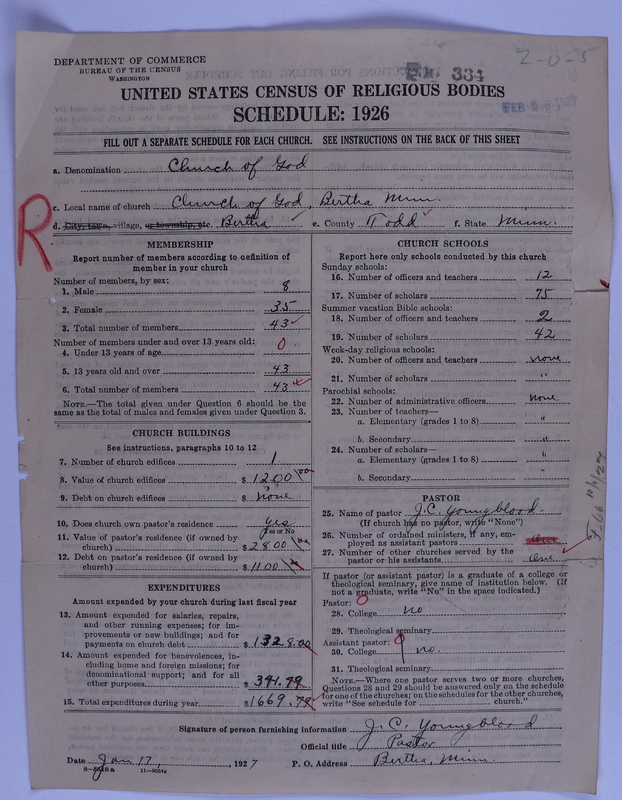 DEPARTMENT OF COMMERCE
BUREAU OF THE CENSUS
WASHINGTON
334
2-0-5
FEB 1927
UNITED STATES CENSUS OF RELIGIOUS BODIES
SCHEDULE: 1926
FILL OUT A SEPARATE SCHEDULE FOR EACH CHURCH. SEE INSTRUCTIONS ON THE BACK OF THIS SHEET
R
a. Denomination Church of God
c. Local name of church Church of God, Bertha Minn.
d. City, town, village, or township, etc. Bertha e. County Todd f. State Minn.
MEMBERSHIP
Report number of members according to definition of
member in your church
Number of members, by sex:
1. Male 8
2. Female 35
3. Total number of members 43
Number of members under and over 13 years old:
4. Under 13 years of age 0
5. 13 years old and over 43
6. Total number of members 43
NOTE.—The total given under Question 6 should be
same as the total of males and females given under Question 3.
CHURCH BUILDINGS
See instructions, paragraphs 10 to 12
7. Number of church edifices 1
8. Value of church edifices $ 1200 00
9. Debt on church edifices $ none
10. Does church own pastor's residence yes
Yes or No
11. Value of pastor's residence (if owned by
church) $ 2800 00
12. Debt on pastor's residence (if owned by
church) $ 1100 00
EXPENDITURES
Amount expended by your church during last fiscal year
13. Amount expended for salaries, repairs,
and other running expenses; for im-
provements or new buildings; and for
payments on church debt $ 1328.00
14. Amount expended for benevolences, in-
cluding home and foreign missions; for
denominational support; and for all
other purposes $ 341.79
15. Total expenditures during year $ 1669.79
CHURCH SCHOOLS
Report here only schools conducted by this church
Sunday schools:
16. Number of officers and teachers 12
17. Number of scholars 75
Summer vacation Bible schools:
18. Number of officers and teachers 2
19. Number of scholars 42
Week-day religious schools:
20. Number of officers and teachers none
21. Number of scholars "
Parochial schools:
22. Number of administrative officers none
23. Number of teachers—
a. Elementary (grades 1 to 8) "
b. Secondary "
24. Number of scholars—
a. Elementary (grades 1 to 8) "
b. Secondary "
PASTOR
25. Name of pastor J. C. Youngblood
(If church has no pastor, write "None")
26. Number of ordained ministers, if any, em-
ployed as assistant pastors
27. Number of other churches served by the
pastor or his assistants one
If pastor (or assistant pastor) is a graduate of a college or
theological seminary, give name of institution below. (If
not a graduate, write "No" in the space indicated.)
Pastor: 0
28. College no
29. Theological seminary
Assistant pastor: 0
30. College no.
31. Theological seminary
NOTE.—Where one pastor serves two or more churches,
Questions 28 and 29 should be answered only on the schedule
for one of the churches; on the schedules for the other churches,
write "See schedule for church."
Signature of person furnishing information J. C. Youngblood
Official title Pastor
Date Jan 17, 1927 P. O. Address Bertha, Minn.